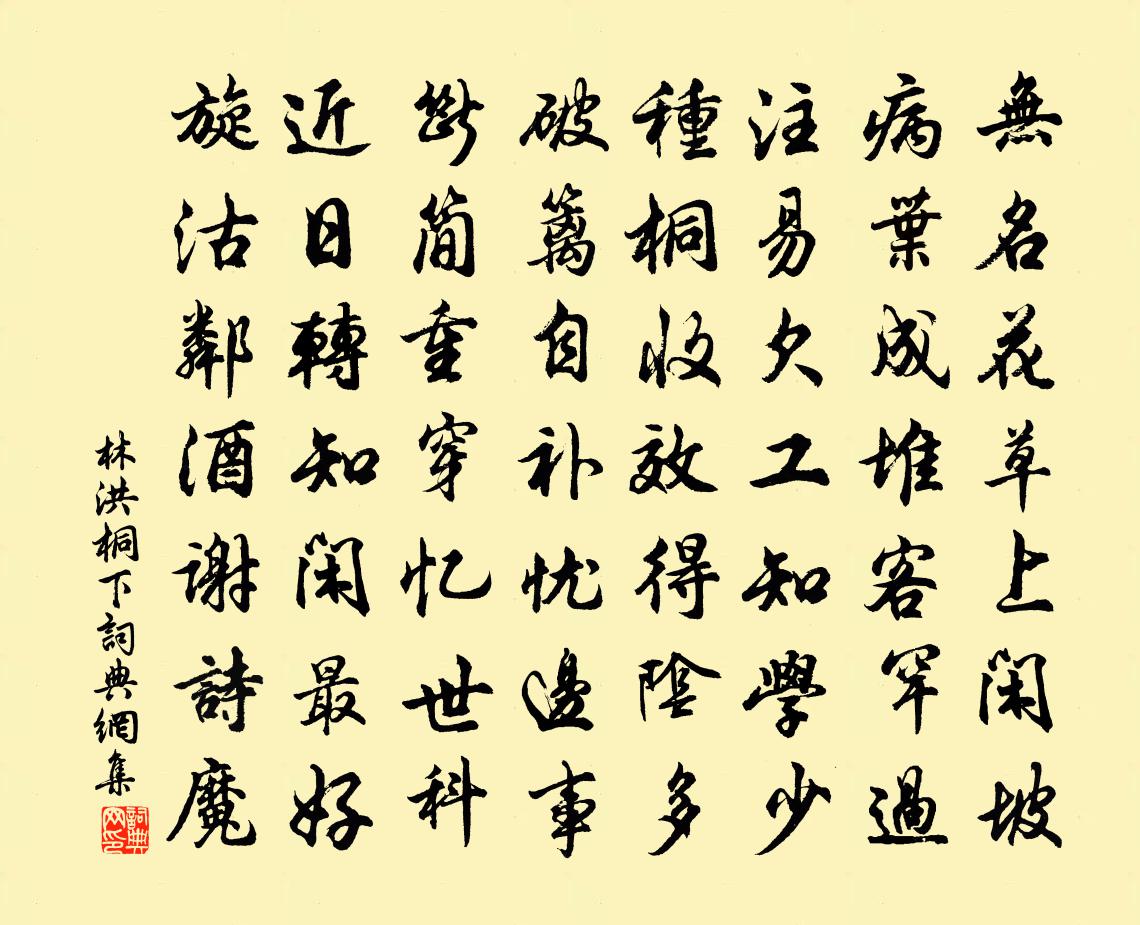 無名花草上閑坡
病葉成堆客罕過
注易欠工知學少
種桐收效得陰多
破籬自补忧邊事
斷简重穿忆世科
近日轉知闲最好
旋沽鄰酒谢詩魔
林洪桐下詞典網集
詞典网印